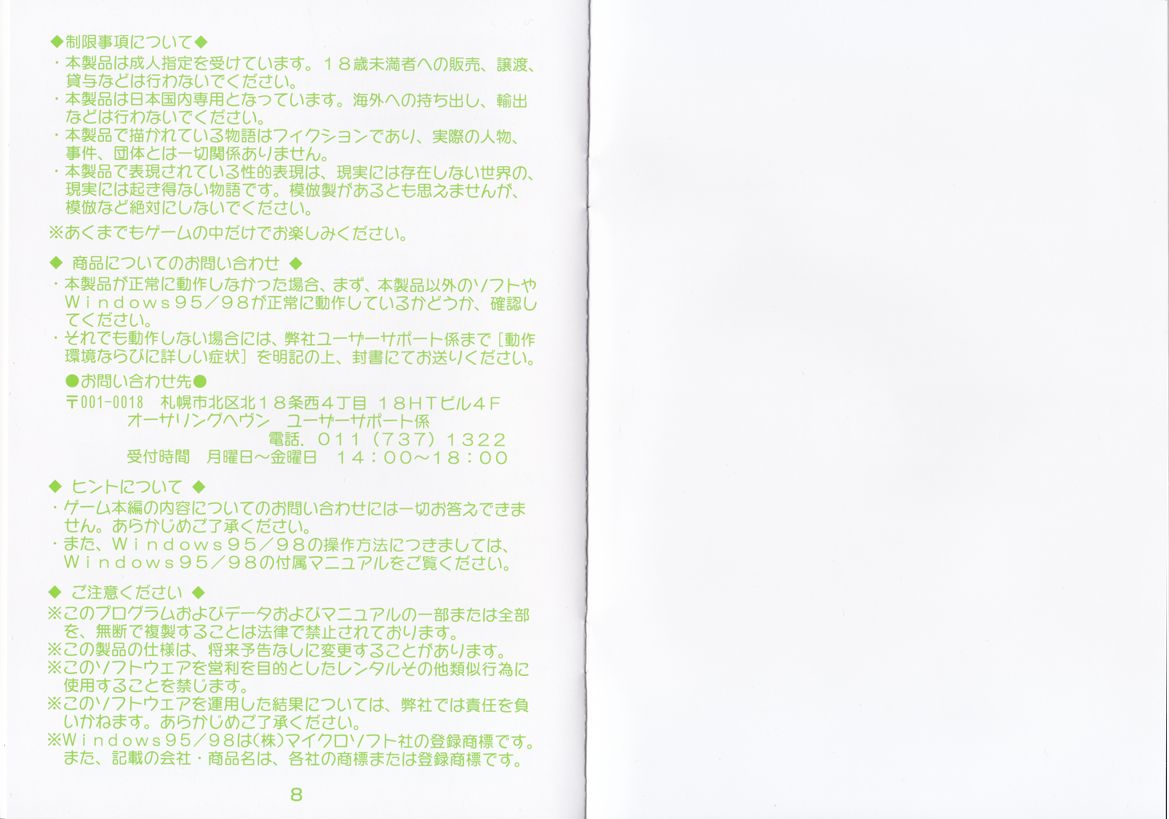 ◆制限事項について◆
・本製品は成人指定を受けています。１８歳未満者への販売、譲渡、
貸与などは行わないでください。
・本製品は日本国内専用となっています。海外への持ち出し、輸出
などは行わないでください。
・本製品で描かれている物語はフィクションであり、実際の人物、
事件、団体とは一切関係ありません。
・本製品で表現されている性的表現は、現実には存在しない世界の、
現実には起き得ない物語です。模倣製があるとも思えませんが、
模倣など絶対にしないでください。
※あくまでもゲームの中だけでお楽しみください。
◆ 商品についてのお問い合わせ ◆
・本製品が正常に動作しなかった場合、まず、本製品以外のソフトや
Ｗｉｎｄｏｗｓ９５／９８が正常に動作しているかどうか、確認し
てください。
・それでも動作しない場合には、弊社ユーザーサポート係まで［動作
環境ならびに詳しい症状］を明記の上、封書にてお送りください。
●お問い合わせ先●
〒001-0018　札幌市北区北１８条西４丁目 １８ＨＴビル４Ｆ
オーサリングヘヴン　ユーザーサポート係
電話．０１１（７３７）１３２２
受付時間　月曜日～金曜日　１４：００～１８：００
◆ ヒントについて ◆
・ゲーム本編の内容についてのお問い合わせには一切お答えできま
せん。あらかじめご了承ください。
・また、Ｗｉｎｄｏｗｓ９５／９８の操作方法につきましては、
Ｗｉｎｄｏｗｓ９５／９８の付属マニュアルをご覧ください。
◆ ご注意ください ◆
※このプログラムおよびデータおよびマニュアルの一部または全部
を、無断で複製することは法律で禁止されております。
※この製品の仕様は、将来予告なしに変更することがあります。
※このソフトウェアを営利を目的としたレンタルその他類似行為に
使用することを禁じます。
※このソフトウェアを運用した結果については、弊社では責任を負
いかねます。あらかじめご了承ください。
※Ｗｉｎｄｏｗｓ９５／９８は(株)マイクロソフト社の登録商標です。
また、記載の会社・商品名は、各社の商標または登録商標です。
８